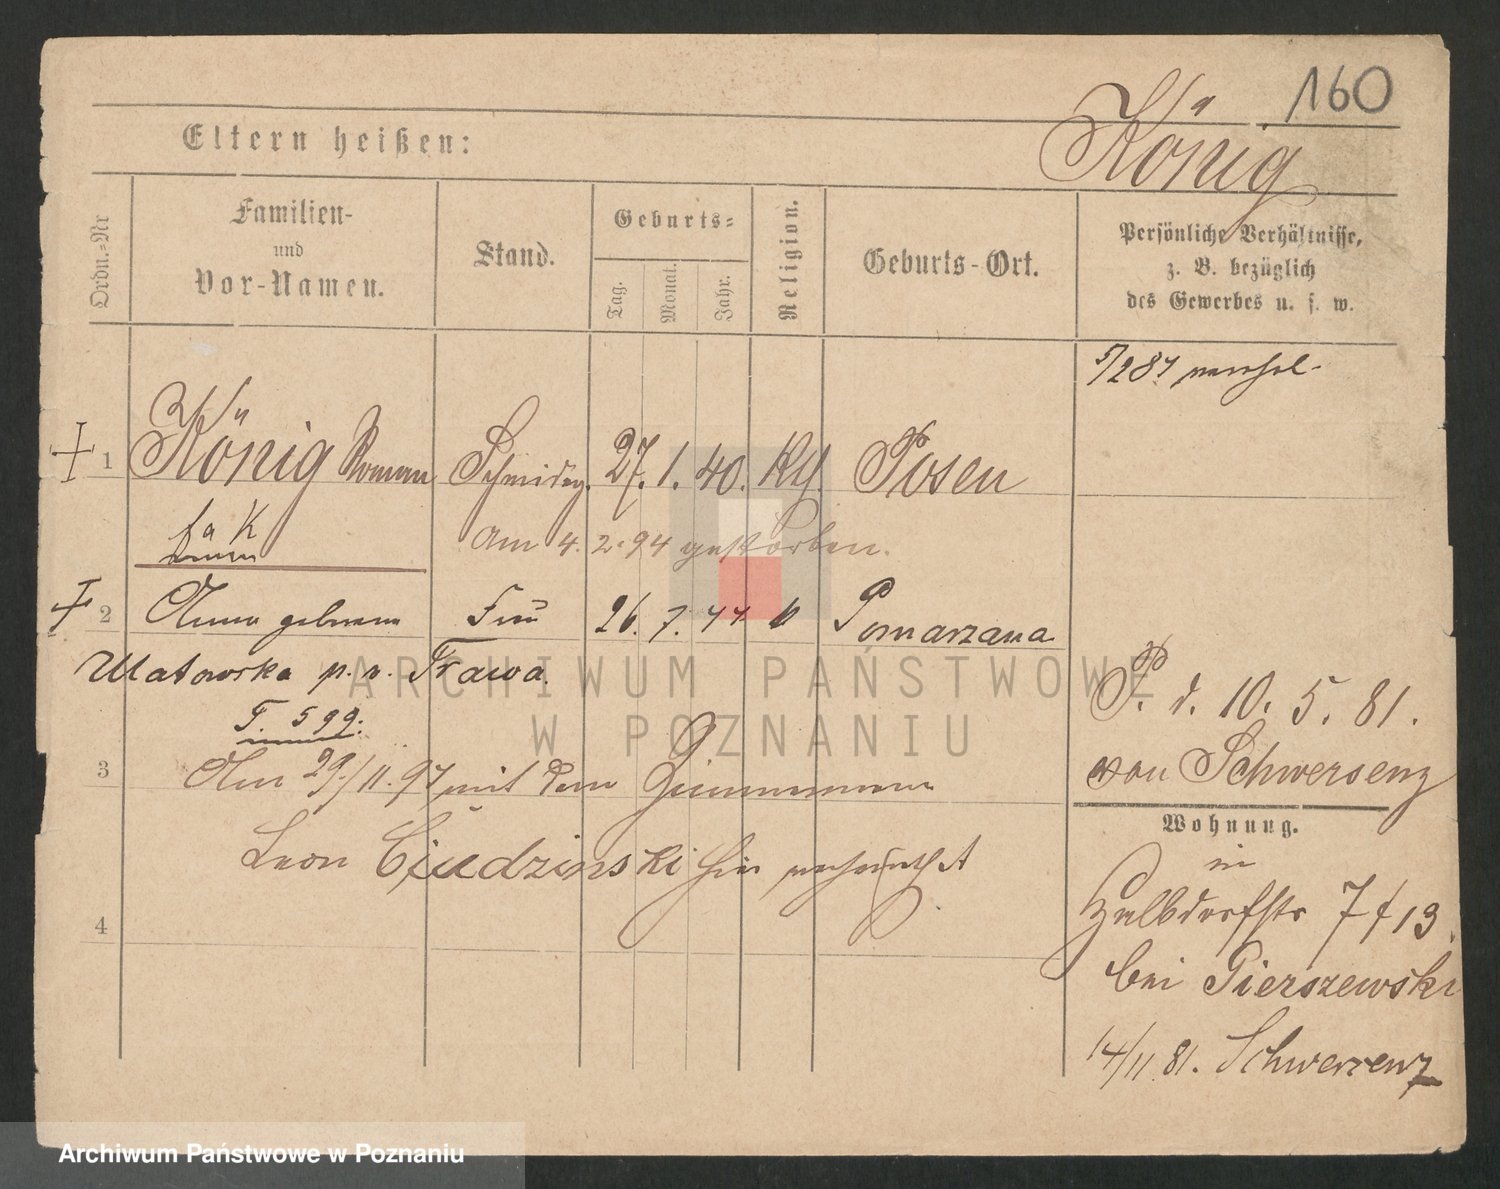 160
König
Eltern heißen:
Ordn.=Nr
Familien-
und
Vor-Namen.
Stand.
Geburts=
Tag.
Monat.
Jahr.
Religion.
Geburts-Ort.
Persönliche Verhältnisse,
z. B. bezüglich
des Gewerbes u. s. w.
1 König Roman 27. 1. 40. Kth. Posen
am 4. 2. 94 gestorben.
2 Anna geborene Frau 26. 7. 44 k Pomarzana
p. v. Trawa.
T. 599.
P. d. 10. 5. 81.
von Schwersenz
3 Am 29/11. 97 mit dem Zimmermann
Wohnung.
Leon hier verheirathet
in
4 Halbdorfstr 7 f 13.
bei Pierszewski
14/11. 81. Schwersenz
ARCHIWUM PAŃSTWOWE
W POZNANIU
Archiwum Państwowe w Poznaniu